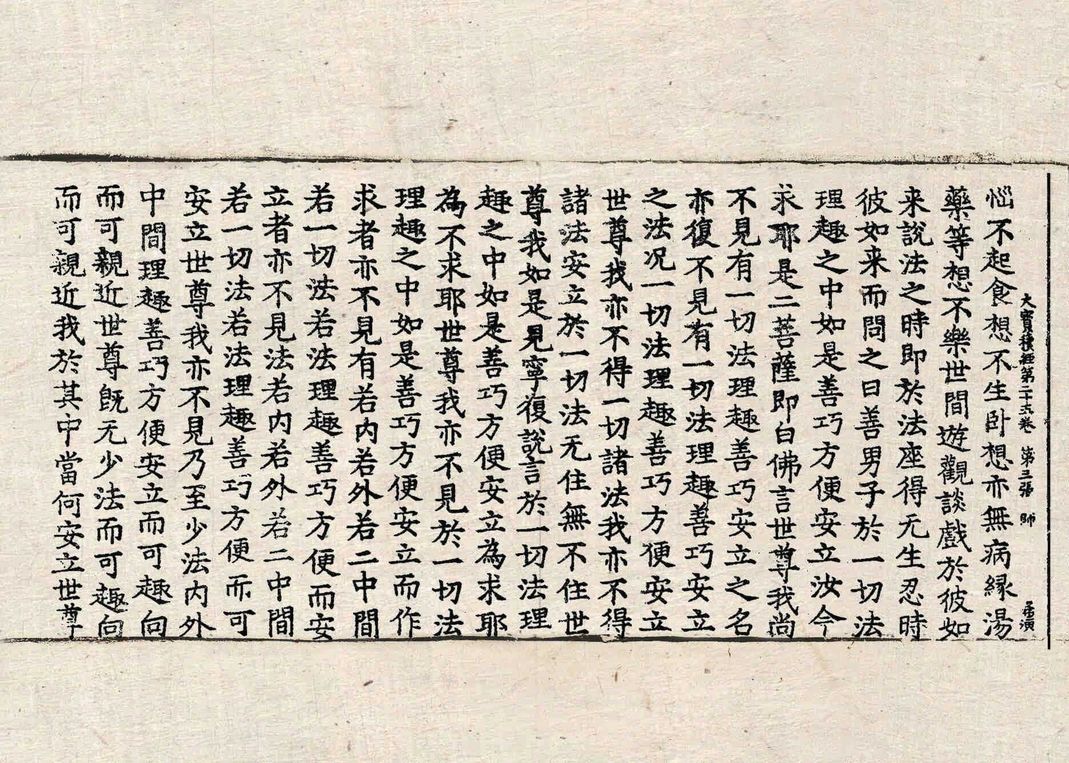 大寶積經第二十五卷 第三張 師
惱不起食想不生卧想亦無病緣湯
藥等想不樂世間遊觀談戲於彼如
来說法之時即於法座得无生忍時
彼如来而問之曰善男子於一切法
理趣之中如是善巧方便安立汝今
求耶是二菩薩即白佛言世尊我尚
不見有一切法理趣善巧安立之名
亦復不見有一切法理趣善巧安立
之法况一切法理趣善巧方便安立
世尊我亦不得一切諸法我亦不得
諸法安立於一切法无住無不住世
尊我如是見寧復說言於一切法理
趣之中如是善巧方便安立為求耶
為不求耶世尊我亦不見於一切法
理趣之中如是善巧方便安立而作
求者亦不見有若内若外若二中間
若一切法若法理趣善巧方便而安
立者亦不見法若内若外若二中間
若一切法若法理趣善巧方便而可
安立世尊我亦不見乃至少法内外
中間理趣善巧方便安立而可趣向
而可親近世尊旣无少法而可趣向
而可親近我於其中當何安立世尊